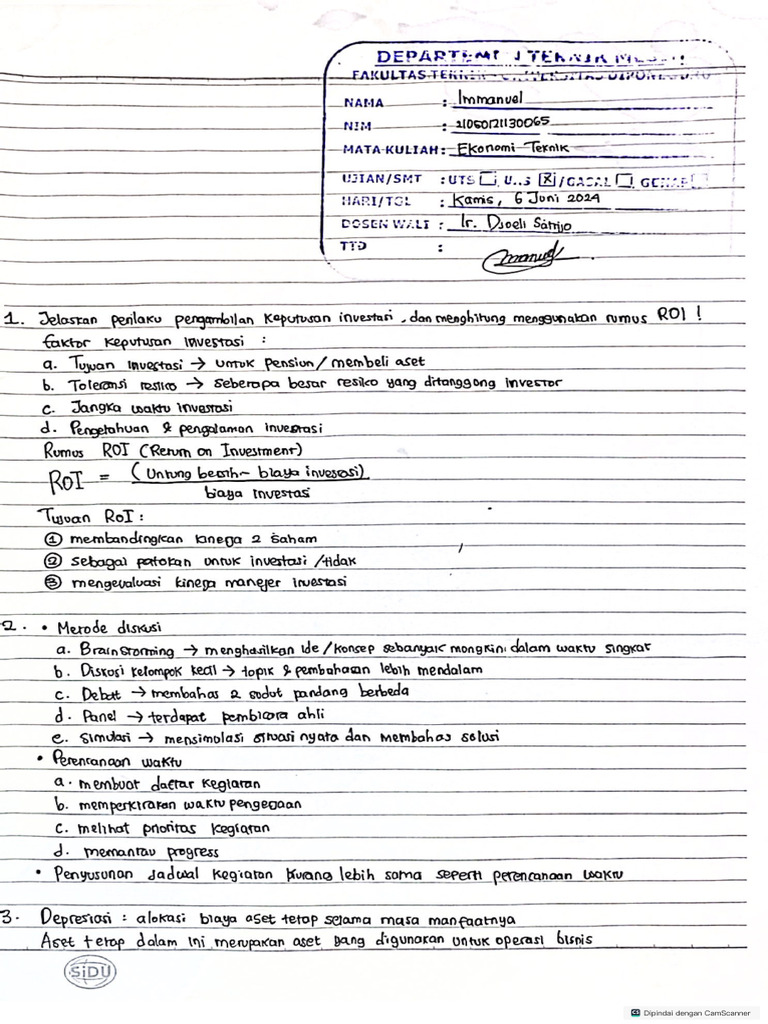 DEPARTEM TEKNIK MESI
FAKULTAS TEKNIK - UNIVERSITAS DIPONEGORO
NAMA : Immanuel
NIM : 21050121130065
MATA KULIAH : Ekonomi Teknik
UJIAN/SMT : UTS U..S X / GASAL GENAP
HARI/TGL : Kamis, 6 Juni 2024
DOSEN WALI : Ir. Djoeli Satrijo
TTD :
1. Jelaskan perilaku pengambilan keputusan investasi, dan menghitung menggunakan rumus ROI !
faktor keputusan investasi :
a. Tujuan investasi → untuk pensiun/ membeli aset
b. Toleransi resiko → seberapa besar resiko yang ditanggong investor
c. Jangka waktu investasi
d. Pengetahuan & pengalaman investasi
Rumus ROI (Return on Investment)
ROI = (Untung bersih - biaya investasi)
biaya investasi
Tujuan ROI :
① membandingkan kinerja 2 saham
② sebagai patokan untuk investasi /tidak
③ mengevaluasi kinerja manejer investasi
2. • Metode diskusi
a. Brainstorming → menghasilkan ide / konsep sebanyak mungkin dalam waktu singkat
b. Diskusi kelompok kecil → topik & pembahasan lebih mendalam
c. Debat → membahas 2 sudut pandang berbeda
d. Panel → terdapat pembicara ahli
e. Simulasi → mensimolasi situasi nyata dan membahas solusi
• Perencanaan waktu
a. membuat daftar kegiatan
b. memperkirakan waktu pengerjaan
c. melihat prioritas kegiatan
d. memantau progress
• Penyusunan Jadwal kegiatan kurang lebih sama seperti perencanaan waktu
3. Depresiasi : alokasi biaya aset tetap selama masa manfaatnya
Aset tetap dalam ini merupakan aset yang digunakan untuk operasi bisnis
SiDU
Dipindai dengan CamScanner